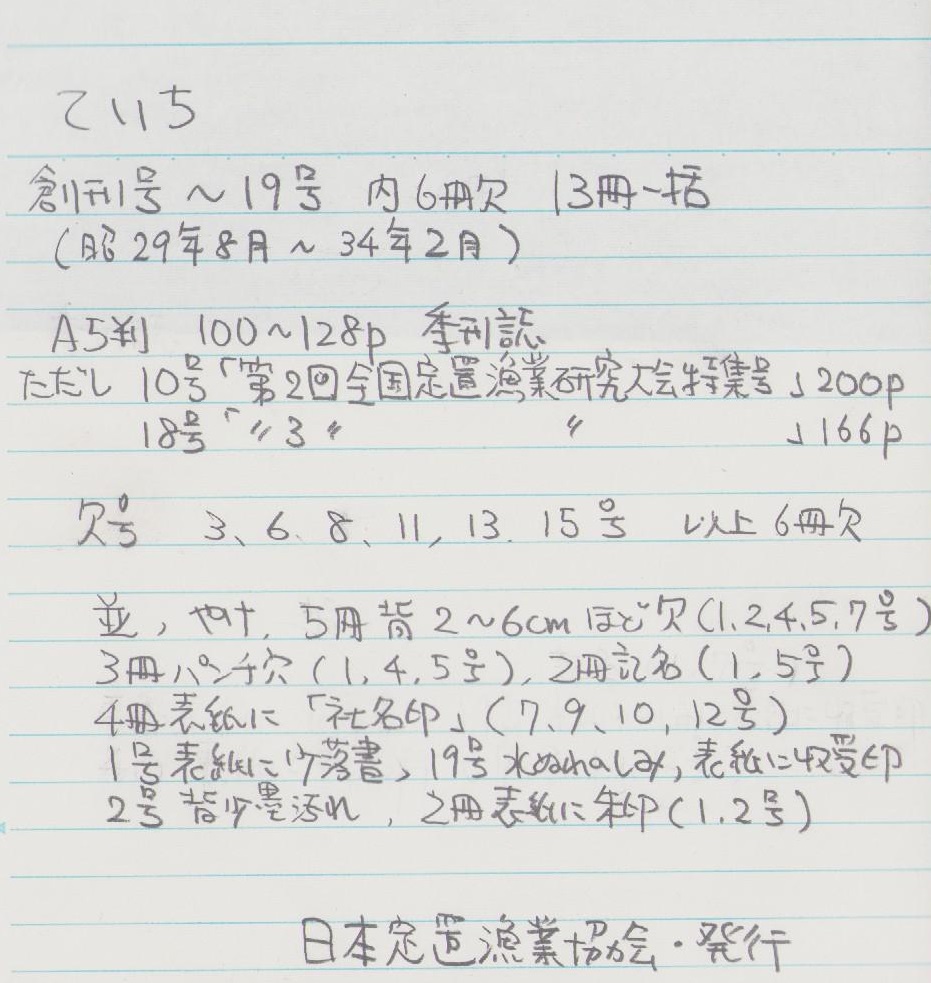 ていち
創刊1号～19号 内6冊欠 13冊一括
(昭29年8月～34年2月)
A5判 100～128p 季刊誌
ただし 10号「第2回全国定置漁業研究大会特集号」200p
18号「〃3〃 〃 」166p
欠号 3、6、8、11, 13. 15号 以上6冊欠
並, やけ, 5冊背2～6cmほど欠(1.2,4,5,7号)
3冊パンチ穴(1,4,5号), 2冊記名(1,5号)
4冊表紙に「社名印」(7、9、10, 12号)
1号表紙に少落書, 19号水ぬれしみ, 表紙に収受印
2号背少墨汚れ, 2冊表紙に朱印(1.2号)
日本定置漁業協会・発行